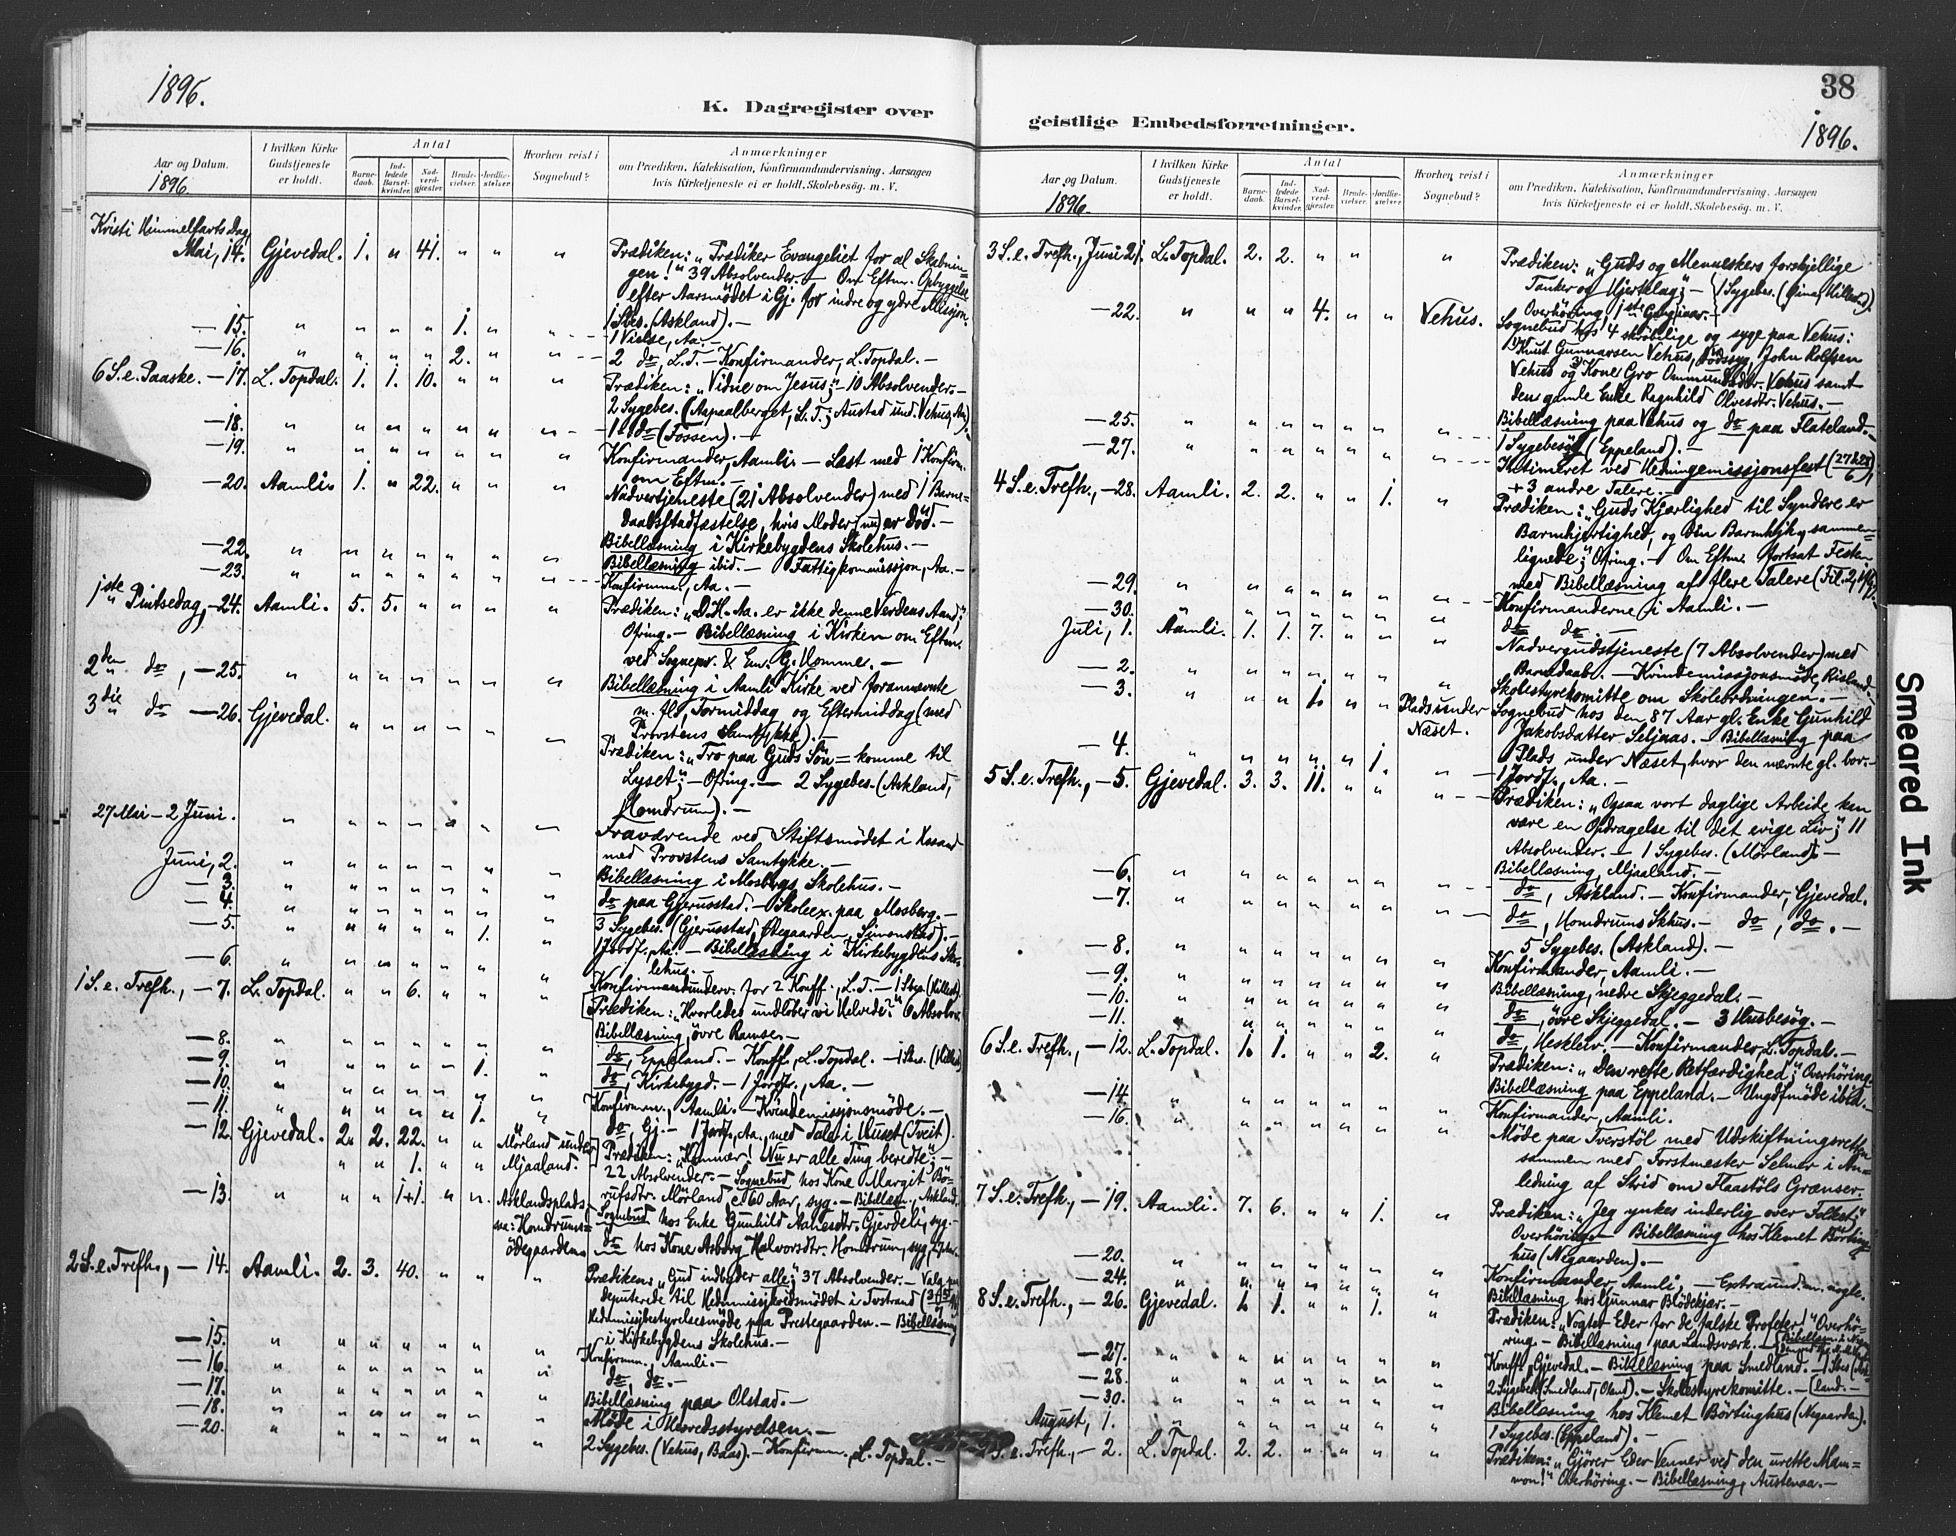 1896.
K. Dagregister over
Aar og Datum.
1896.
I hvilken Kirke Gudstjeneste er holdt.
Antal
Barnedaab.
Indledede Barselkvinder.
Nadverdgjæster.
Brudevielser.
Jordfæstelser.
Hvorhen reist i Sognebud?
Anmærkninger
om Prædiken, Katekisation, Konfirmandundervisning, Aarsagen
hvis Kirketjeneste ei er holdt, Skolebesøg, m. V.
Kristi Himmelfarts Dag,
Mai, 14. Gjevedal. 1. " 41. " " " Prædiken: "Prædiker Evangeliet for al Skabnin-
gen!" 39 Absolvender. — Om Eftm. Opbyggelse
efter Aarsmødet i Gj. for indre og ydre Mission.
— 15. " " " " 1. " " 1 Sbes. (Askland). —
1 Vielse, Aa. —
— 16. " " " " 2. " " 2 do, L.T. — Konfirmander, L. Topdal. —
6 S. e. Paaske. — 17. L. Topdal. 1. 1. 10. " " " Prædiken: "Vidne om Jesus;" — 10 Absolvender. —
2 Sygebes. (Aapaalberget, L.T.; Austad und. Vehus, Aa.)
— 18. " " " " " " " 1 do (Fossen). —
— 19. " " " " " " " Konfirmander, Aamli. — Læst med 1 Konfirm.
om Eftm. —
— 20. Aamli. 1. " 22. " " " Nadvertjeneste (21 Absolvender) med 1 Barne-
daabsstadfæstelse, hvis Moder (nu) er død. —
— 22. " " " " " " " Bibellæsning i Kirkebygdens Skolehus. —
— 23. " " " " " " " Bibellæsning ibid. — Fattigkommission, Aa. —
Konfirmm., Aa. —
1ste Pintsedag, — 24. Aamli. 5. 5. " " " " Prædiken: "D.H.-Aa. er ikke denne Verdens Aand;"
Ofring. — Bibellæsning i Kirken om Eftm.
ved Sognepr. & Em. G. Hommer. —
2den do, — 25. " " " " " " " Bibellæsning i Aamli Kirke ved forannævnte
m. fl., Formiddag og Eftermiddag (med
Provstens Samtykke). —
3die do — 26. Gjevedal. " " " " " " Prædiken: "Tro paa Guds Søn = komme til
Lyset;" — Ofring. — 2 Sygebes. (Askland,
Homdrum). —
27 Mai — 2 Juni. " " " " " " " Fraværende ved Stiftsmødet i
med Provstens Samtykke. —
Juni, 2. " " " " " " " Bibellæsning i Mosbergs Skolehus. —
— 3. " " " " " " " do paa Gjerusstad. — Skoleex. paa Mosberg. —
— 4. " " " " " " " 3 Sygebes. (Gjerusstad, Øegaarden, Simonstad). —
— 5. " " " " " 1. " 1 Jordf., Aa. — Bibellæsning i Kirkebygdens Sko-
lehus. —
— 6. " " " " " " " Konfirmandunderv. for 2 Konff., L.T. —
1 S. e. Trefh., — 7. L. Topdal. " " 6. " " " Prædiken: "Hvorledes undløber vi Helvede?" 6 Absolv.
Bibellæsning, øvre Ramse. —
— 8. " " " " " " " do, Eppeland. — Konff., L. Topdal. —
— 9. " " " " " 1. " do, Kirkebygd. — 1 Jordf., Aa. —
— 10. " " " " " " " Konfirmm., Aamli. — Kvindemissjonsmøde. —
— 11. " " " " " 1. " do, Gj. — 1 Jordf., Aa., med Tale i Huset (Tveit).
— 12. Gjevedal. 2. 2. 22. " " Mørland under Prædiken: "Kommer! Nu er alle Ting beredte;" —
" " 1. " " Mjaaland. 22 Absolvender. — Sognebud hos Kone Margit Bø-
rufsdtr. Mørland, c 60 Aar, syg. — Bibellæsn., Askland.
— 13. " " " 1+1. " " Asklandsplads Sognebud hos Enke Gunhild Aanesdtr. Gjevdeli, syg. —
ødegaardene do hos Kone Asborg Halvorsdtr. Homdrum, syg.
2 S. e. Trefh., — 14. Aamli. 2. 3. 40. " " " Prædiken: "Gud indbyder alle;" 37 Absolvender. — Valg paa
deputerede til Hedmissjkredsmødet i Tvestrand
Hedmissjbestyrelsesmøde paa Prestegaarden. — Bibellæsning
i Kirkebygdens Skolehus. —
— 15. " " " " " " " Konfirmm., Aamli. —
— 16. " " " " " " " do, do. —
— 17. " " " " " " " Bibellæsning paa Olstad. —
— 18. " " " " " " " Møde i Herredsstyrelsen. —
— 20. " " " " " " " 2 Sygebes. (Vehus, Baas). — Konfirmm., L. Topdal. —
38
geistlige Embedsforretninger.
1896.
Aar og Datum.
1896.
I hvilken Kirke Gudstjeneste er holdt.
Antal
Barnedaab.
Indledede Barselkvinder.
Nadverdgjæster.
Brudevielser.
Jordfæstelser.
Hvorhen reist i Sognebud?
Anmærkninger
om Prædiken, Katekisation, Konfirmandundervisning, Aarsagen
hvis Kirketjeneste ei er holdt, Skolebesøg, m. V.
3 S. e. Trefh., Juni 21. L. Topdal. 2. 2. " " " " Prædiken: "Guds og Menneskers forskjellige
Tanker og Hjertelag;" — 1 Sygebes.
Overhøring, 1ste Gang iaar. —
— 22. " " " 4. " " Vehus. Sognebud hos 4 skrøbelige og syge paa Vehus:
Knut Gunnarsen Vehus, John Rolfsen
Vehus og Kone Gro Ommundsdtr. Vehus samt
den gamle Enke Ragnhild Olvesdtr. Vehus. —
— 25. " " " " " " " Bibellæsning paa Vehus og do paa Flateland. —
— 27. " " " " " " " 1 Sygebesøg (Eppeland). —
Intimeret ved Hedningemissjonsfest (27&28/6),
+ 3 andre Talere. —
4 S. e. Trefh., — 28. Aamli. 2. 2. " " 1. " Prædiken: "Guds Kjærlighed til Syndere er
Barmhjertighed, og din Barmhjh., sammen-
lignede;" Ofring. — Om Eftm. fortsat Fest
med Bibellæsning af flere Talere
— 29. " " " " " " " Konfirmanderne i Aamli. —
— 30. " " " " " " " do do. —
Juli, 1. Aamli. 1. 1. 7. " " " Nadvergudstjeneste (7 Absolvender) med
Barnedaab. — Kvindemissjonsmøde, Risland. —
— 2. " " " " " " " Skolestyrekomitte om Skoleordningen. —
— 3. " " " 1. " " Plads under Næset. Sognebud hos den 87 Aar gl. Enke Gunhild
Jakobsdatter Seljaas. — Bibellæsning paa
Plads under Næset, hvor den nævnte gl. bor. —
— 4. " " " " " 1. " 1 Jordf., Aa. —
5 S. e. Trefh., — 5. Gjevedal. 3. 3. 11. " " " Prædiken: "Ogsaa vort daglige Arbeide kan
være en Opdragelse til det evige Liv;" 11
Absolvender. — 1 Sygebes. (Mørland). —
— 6. " " " " " " " Bibellæsning, Mjaaland. —
do, Askland. — Konfirmander, Gjevedal.
— 7. " " " " " " " do, Homdrums Skhus. — do, do. —
5 Sygebes. (Askland). —
— 8. " " " " " " " Konfirmander, Aamli. —
— 9. " " " " " " " Bibellæsning, nedre Skjeggedal. —
— 10. " " " " " " " do, øvre Skjeggedal. — 3 Husbesøg. —
— 11. " " " " " " " do, Heskleiv. — Konfirmander, L. Topdal. —
6 S. e. Trefh., — 12. L. Topdal. 1. 1. " " 2. " Prædiken: "Den rette Retfærdighed;" Overhøring.
Bibellæsning paa Eppeland. — Ungdfmøde ibid. —
— 14. " " " " " " " Konfirmander, Aamli.
— 16. " " " " " " " Møde paa Tverstøl med Udskiftningsretten
sammen med Forstmester Selmer i An-
ledning af Strid om Haastøls Grænser.
7 S. e. Trefh., — 19. Aamli. 7. 6. " " 1. " Prædiken: "Jeg ynkes inderlig over Folket;"
Overhøring. — Bibellæsning hos Klemet Børting-
hus (Negaarden). —
— 20. " " " " " " " Konfirmander, Aamli. — Extraund. m. nogle.
— 24. " " " " " " " Bibellæsning hos Gunnar Blødekjær. —
8 S. e. Trefh., — 26. Gjevedal. 1. 1. " " 1. " Prædiken: "Vogter Eder for de falske Profeter!" Overhø-
ring. — Bibellæsning paa Landsværk. —
— 27. " " " " " " " Konff., Gjevedal. — Bibellæsning paa Smedland. —
— 28. " " " " " " " 2 Sygebes. (Smedland, Oland). — Skolestyrekomitte. —
— 30. " " " " " " " Bibellæsning hos Klemet Børtinghus (Negaarden).
August, 1. " " " " " " " 1 Sygebes. (Eppeland). —
S. e. Trefh., — 2. L. Topdal. 2. 2. " " " " Prædiken: "Gjører Eder Venner ved den urette Mam-
mon!" Overhøring. — Bibellæsning, Austenaa. —
Smeared Ink